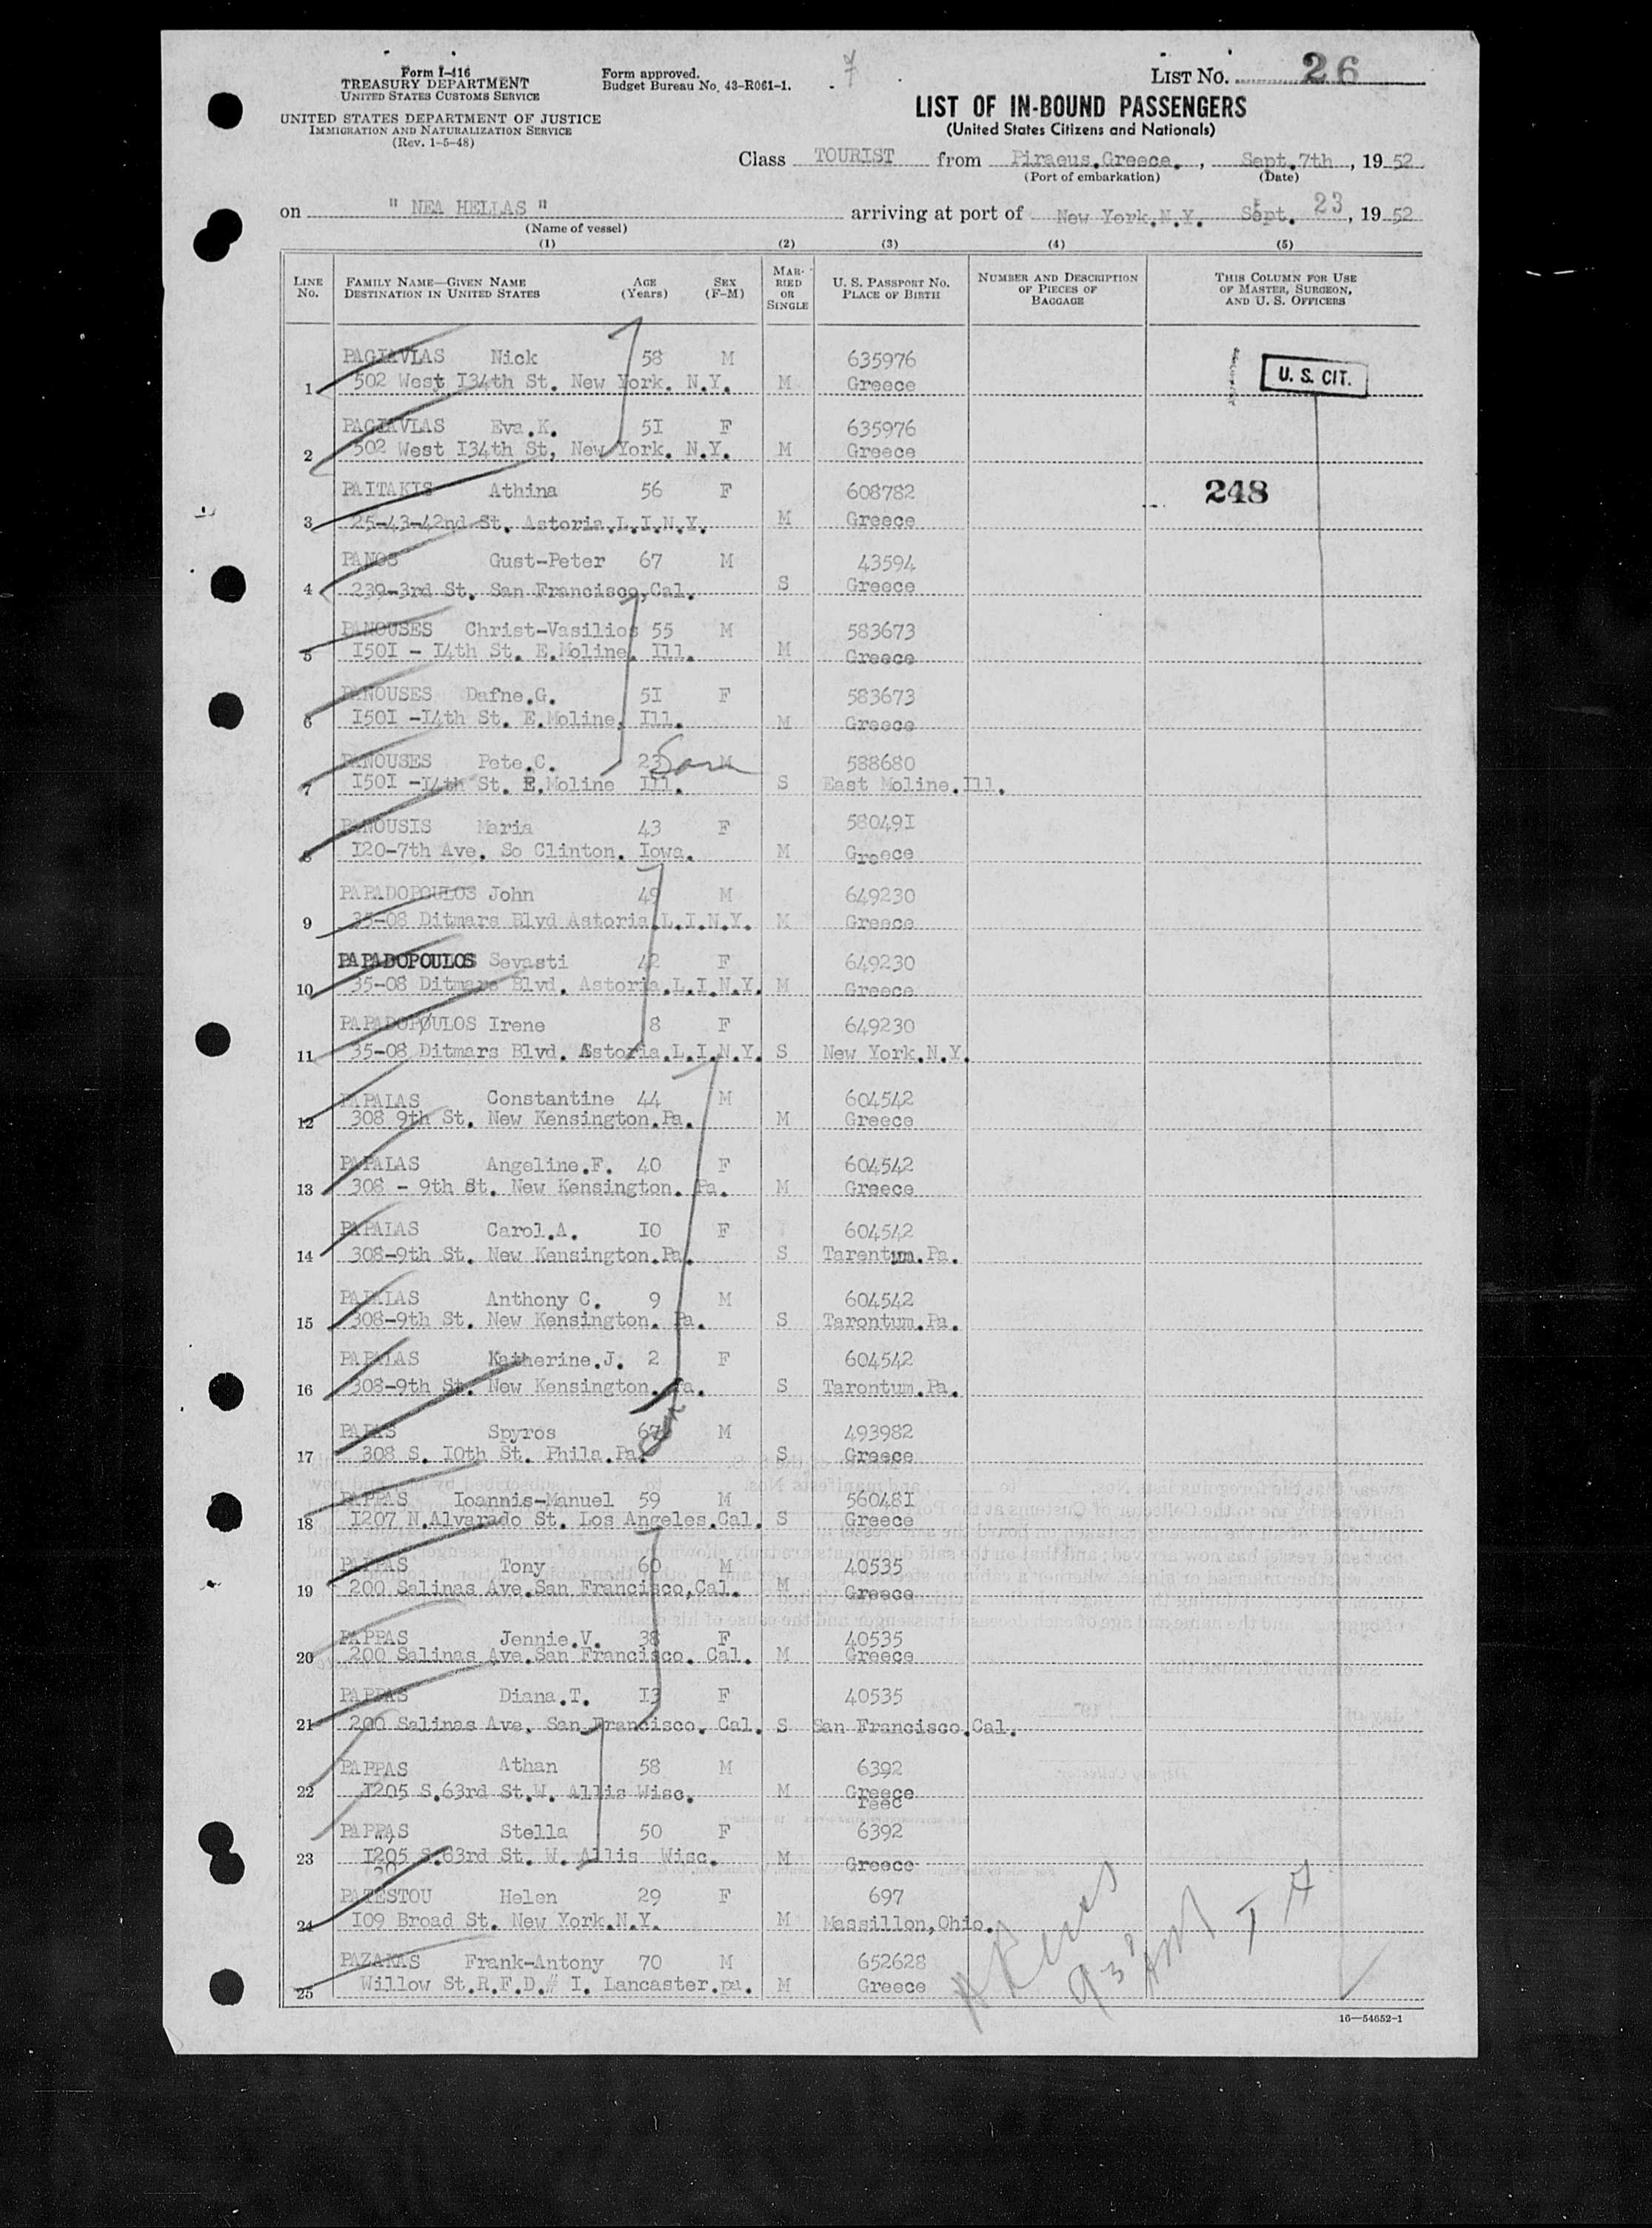 Form I-416
TREASURY DEPARTMENT
UNITED STATES CUSTOMS SERVICE
UNITED STATES DEPARTMENT OF JUSTICE
IMMIGRATION AND NATURALIZATION SERVICE
(Rev. 1-5-48)
Form approved.
Budget Bureau No. 43-R061-1.
7
LIST NO. 26
LIST OF IN-BOUND PASSENGERS
(United States Citizens and Nationals)
Class TOURIST from Piraeus.Greece. , Sept.7th , 19 52
(Port of embarkation) (Date)
on " NEA HELLAS " arriving at port of New York.N.Y. Sept. 23, 19 52
(Name of vessel)
(1) (2) (3) (4) (5)
LINE NO.
FAMILY NAME—GIVEN NAME
DESTINATION IN UNITED STATES
AGE (Years)
SEX (F-M)
MARRIED OR SINGLE
U. S. PASSPORT NO.
PLACE OF BIRTH
NUMBER AND DESCRIPTION OF PIECES OF BAGGAGE
THIS COLUMN FOR USE OF MASTER, SURGEON, AND U. S. OFFICERS
PAGIAVLAS Nick 58 M 635976
1 502 West I34th St. New York. N.Y. M Greece
U. S. CIT.
PAGIAVLAS Eva.K. 5I F 635976
2 502 West I34th St, New York. N.Y. M Greece
PAITAKIS Athina 56 F 608782
248
3 25-43-42nd St. Astoria.L.I.N.Y. M Greece
PANOS Gust-Peter 67 M 43594
4 239-3rd St. San Francisco,Cal. S Greece
PANOUSES Christ-Vasilios 55 M 583673
5 I50I - I4th St. E.Moline. Ill. M Greece
PANOUSES Dafne.G. 5I F 583673
6 I50I -I4th St. E.Moline. Ill. M Greece
PANOUSES Pete.C. 23 M 588680
7 I50I -I4th St. E.Moline Ill. S East Moline.Ill.
PANOUSIS Maria 43 F 58049I
8 I20-7th Ave. So Clinton. Iowa. M Greece
PAPADOPOULOS John 49 M 649230
9 35-08 Ditmars Blvd Astoria.L.I.N.Y. M Greece
PAPADOPOULOS Sevasti 42 F 649230
10 35-08 Ditmars Blvd. Astoria.L.I.N.Y. M Greece
PAPADOPOULOS Irene 8 F 649230
11 35-08 Ditmars Blvd. Astoria.L.I.N.Y. S New York.N.Y.
PAPALAS Constantine 44 M 604542
12 308 9th St. New Kensington.Pa. M Greece
PAPALAS Angeline.F. 40 F 604542
13 308 - 9th St. New Kensington. Pa. M Greece
PAPALAS Carol.A. IO F 604542
14 308-9th St. New Kensington.Pa. S Tarentum.Pa.
PAPALAS Anthony C. 9 M 604542
15 308-9th St. New Kensington. Pa. S Tarontum.Pa.
PAPALAS Katherine.J. 2 F 604542
16 308-9th St. New Kensington. Pa. S Tarontum.Pa.
PAPAS Spyros 67 M 493982
17 308 S. IOth St. Phila.Pa. S Greece
PAPPAS Ioannis-Manuel 59 M 56048I
18 I207 N.Alvarado St. Los Angeles.Cal. S Greece
PAPPAS Tony 60 M 40535
19 200 Salinas Ave.San Francisco,Cal. M Greece
PAPPAS Jennie.V. 38 F 40535
20 200 Salinas Ave.San Francisco. Cal. M Greece
PAPPAS Diana.T. I3 F 40535
21 200 Salinas Ave. San Francisco. Cal. S San Francisco.Cal.
PAPPAS Athan 58 M 6392
22 I205 S.63rd St.W. Allis Wisc. M Greece
reec
PAPPAS Stella 50 F 6392
23 I205 S.63rd St. W. Allis Wisc. M Greece
PATESTOU Helen 29 F 697
24 I09 Broad St. New York.N.Y. M Massillon,Ohio.
PAZAKAS Frank-Antony 70 M 652628
25 Willow St.R.F.D.# I. Lancaster.pa. M Greece
16—54652-1